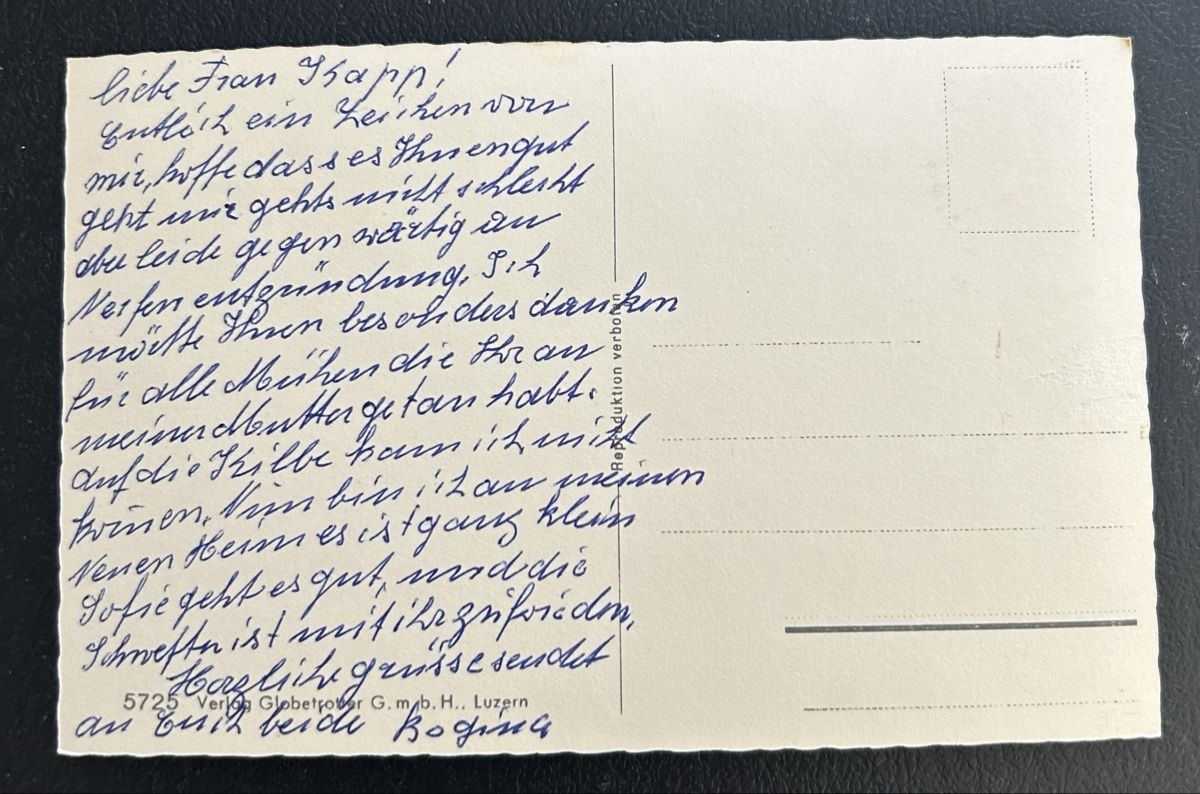 liebe Frau Kapp!
Entlich ein Zeichen von
mir, hoffe dass es Ihnen gut
geht mir gehts nicht schlecht
aber leide gegenwärtig an
Nerfenentzündung. Ich
möchte Ihnen besonders danken
für alle Mühen die Ihr an
meiner Mutter getan habt.
auf die Kilbe kam ich nicht
komen. Nun bin ich an meinen
Neuen Heim es ist ganz klein
Sofie geht es gut, und die
Schwester ist mit ihr zufrieden.
Herzliche grüsse sendet
an Euch beide Regina
5725 Verlag Globetrotter G. m. b. H., Luzern
Reproduktion verboten